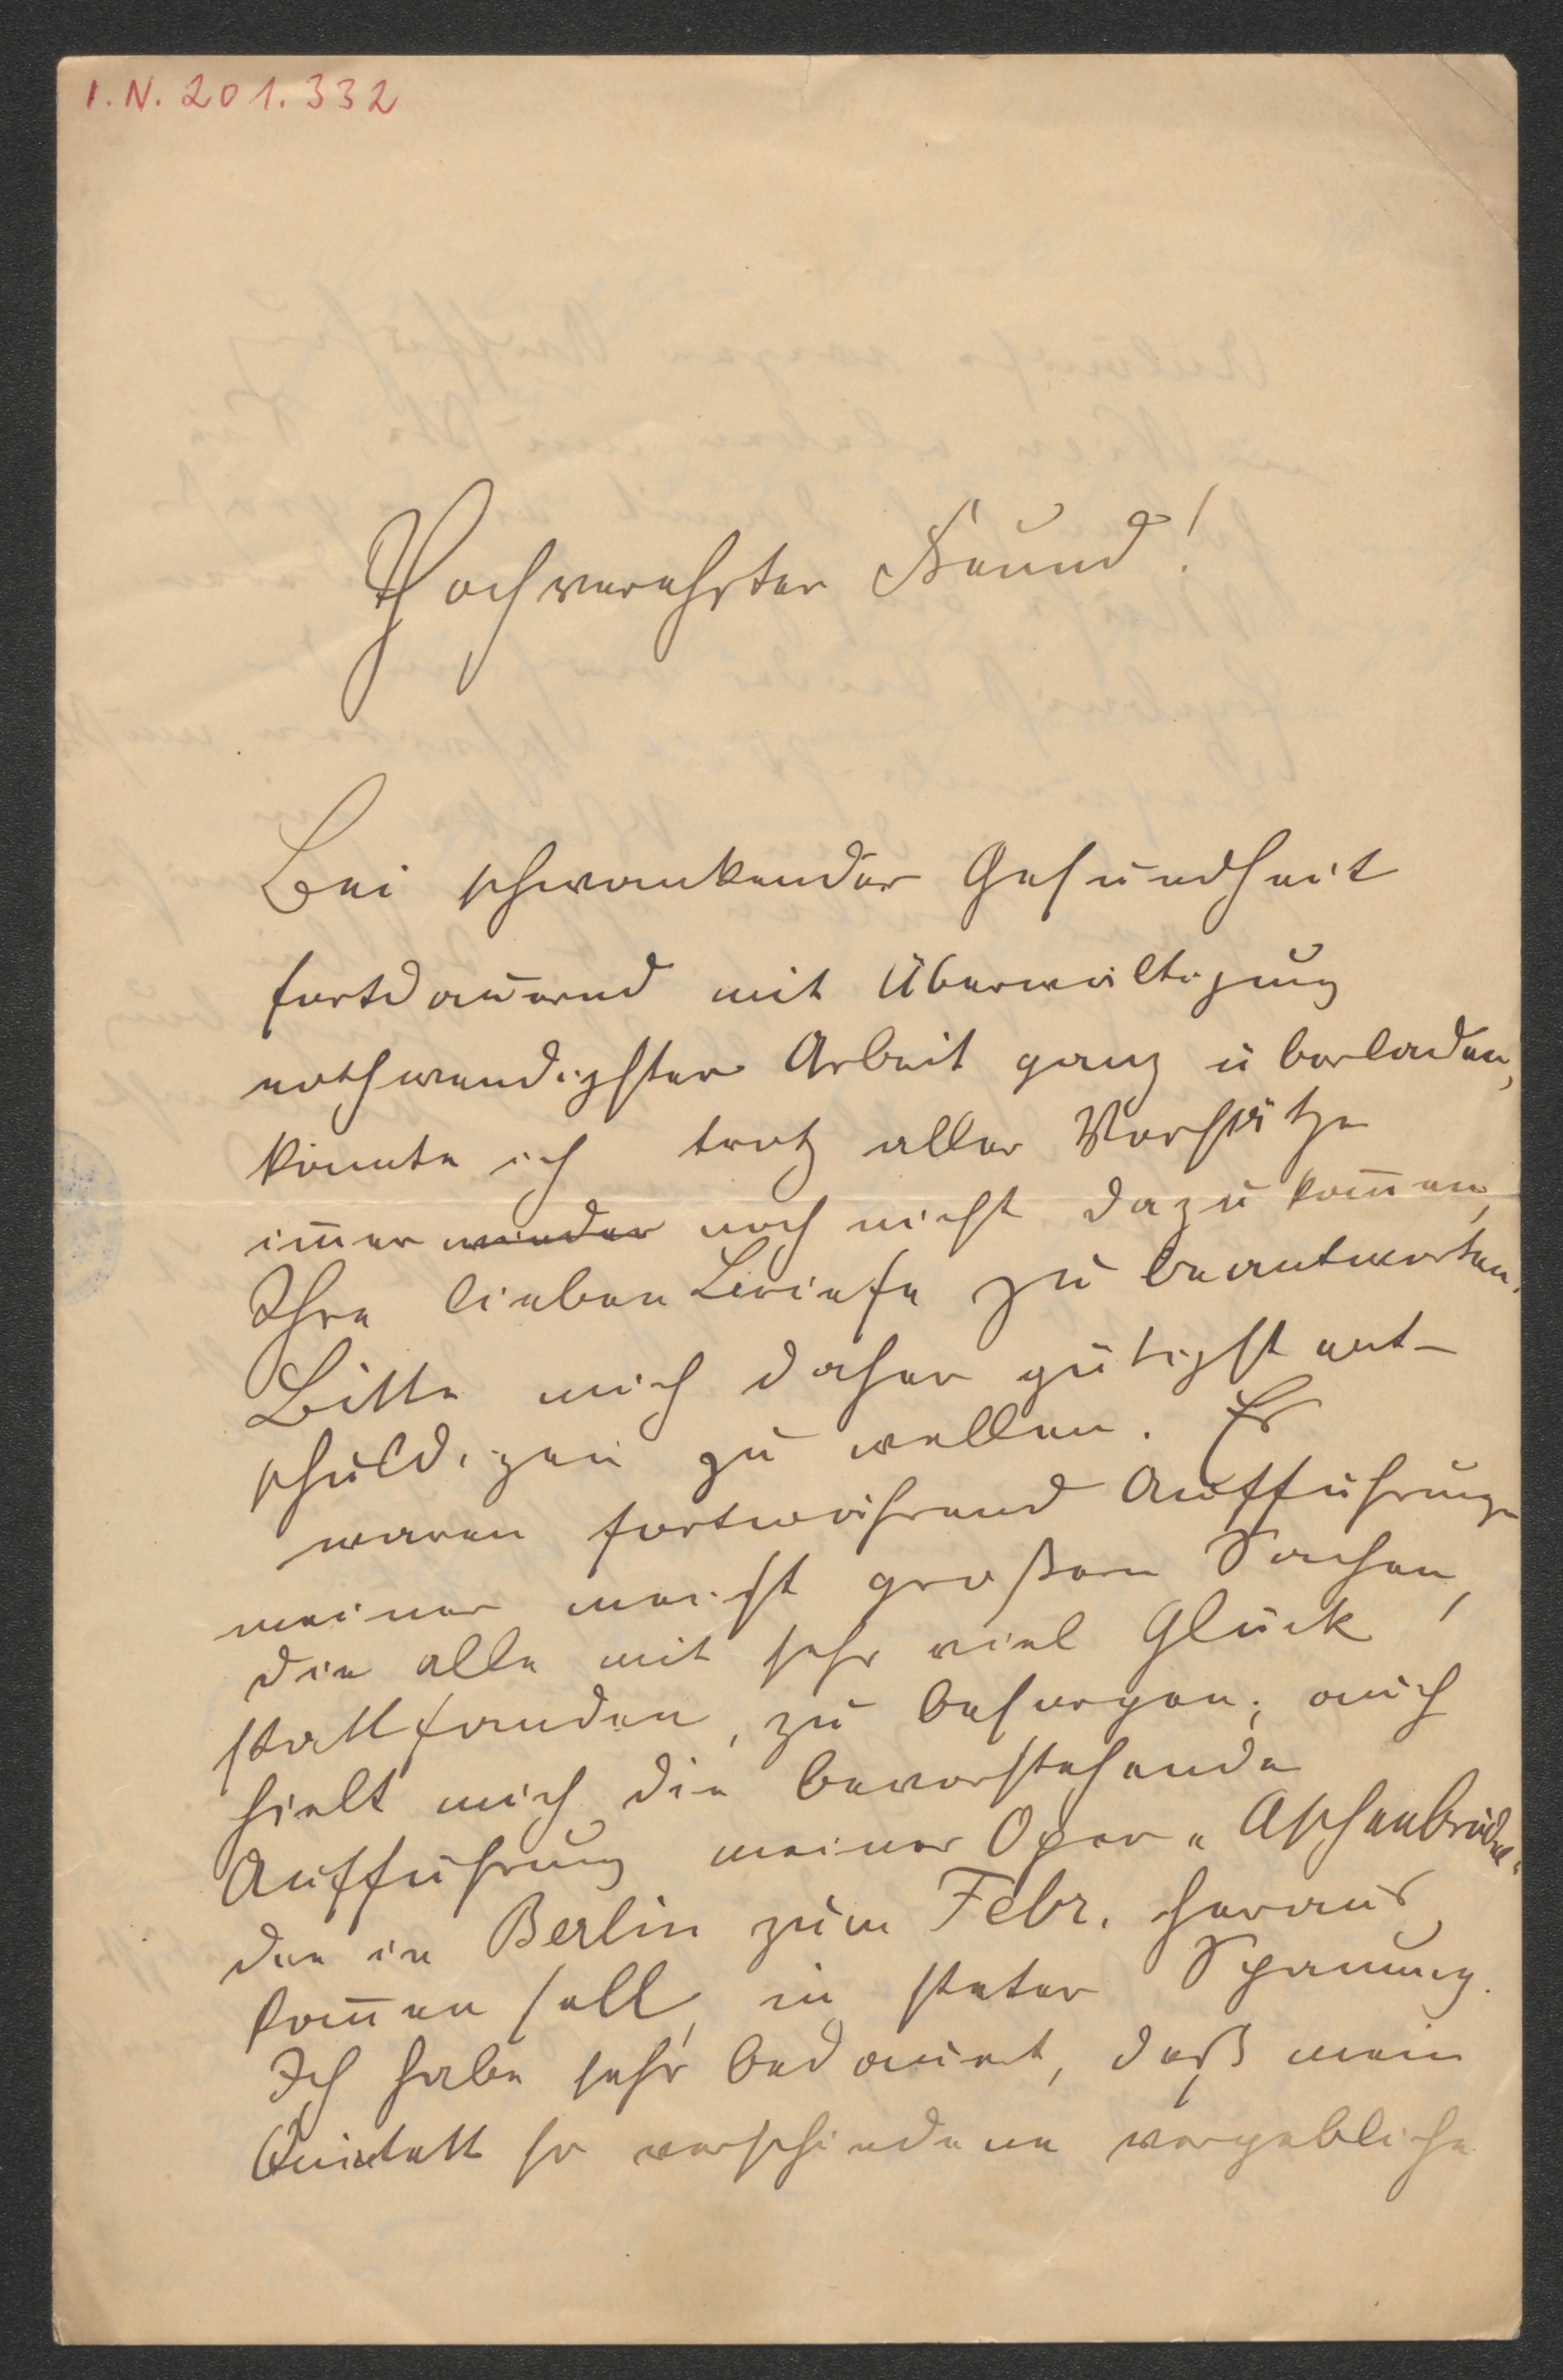 I. N. 201.332
Hochverehrter Freund!
Bei schwankender Gesundheit
fortdauernd mit Überwältigung
nothwendigster Arbeit ganz überladen,
konnte ich trotz aller Vorsätze
im̄er wieder noch nicht dazu kom̄en,
Ihre lieben Briefe zu beantworten.
Bitte mich daher gütigst ent-
schuldigen zu wollen. Es
waren fortwährend Aufführungen
meiner meist großen Sachen,
die alle mit sehr viel Glück
stattfanden, zu besorgen; auch
hielt mich die bevorstehende
Aufführung meiner Oper „Aschenbrödel“
die in Berlin zum Febr. heraus
kom̄en soll, in steter Spannung.
Ich habe sehr bedauert, daß mein
Quintett so verschiedene vergebliche